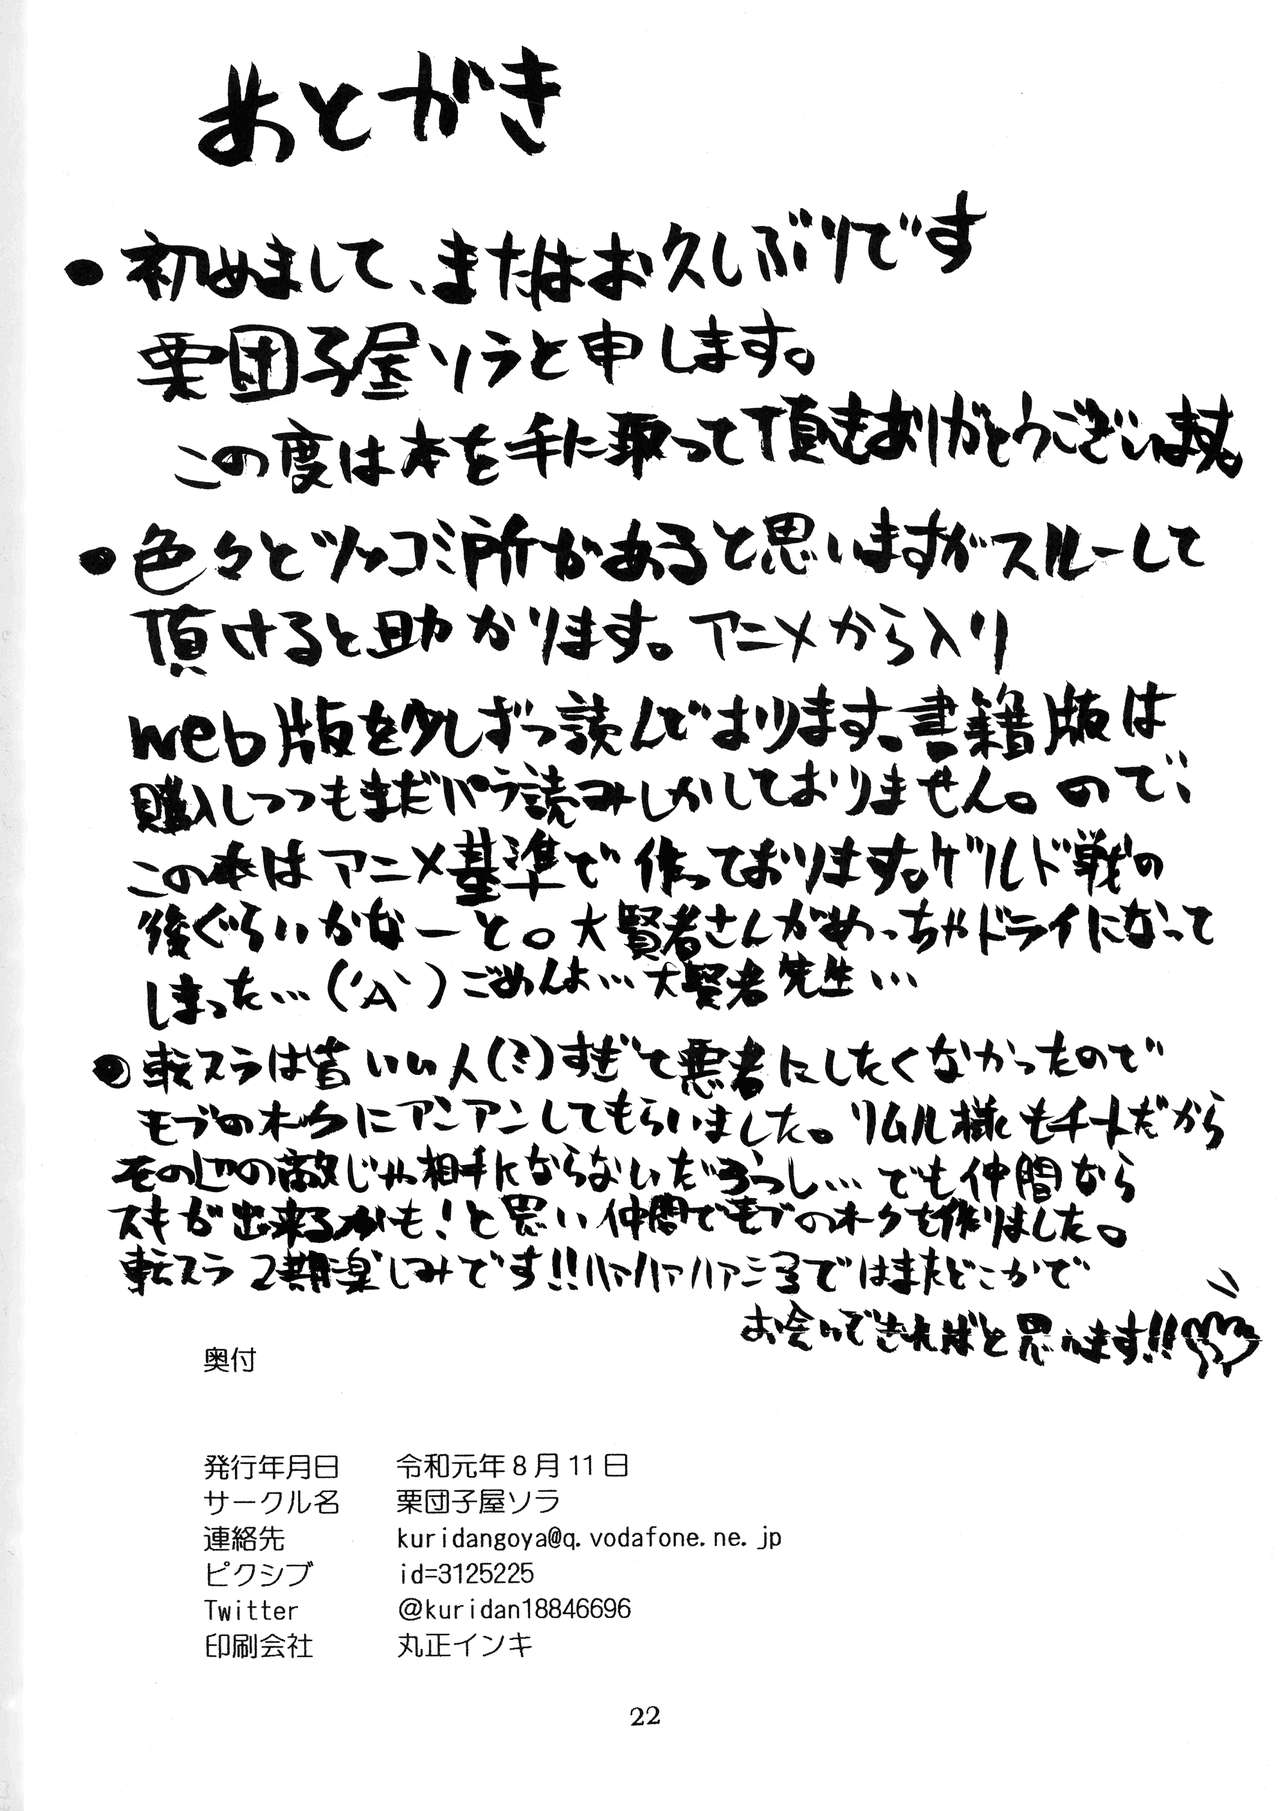 あとがき
・初めまして、またはお久しぶりです
栗団子屋ソラと申します。
この度は本を手に取って頂きありがとうございます。
・色々とツッコミ所があると思いますがスルーして
頂けると助かります。アニメから入り
web版を少しずつ読んでおります。書籍版は
購入しつつもまだパラ読みしかしておりません。ので、
この本はアニメ基準で作っております。ゲルド戦の
後ぐらいかなーと。大賢者さんがめっちゃドライになって
しまった…('A`)ごめんよ…大賢者先生…
・転スラは皆いい人(ミ)すぎて悪者にしたくなかったので
モブのオークにアンアンしてもらいました。リムル様もチートだから
その辺の敵じゃ相手にならないだろうし…でも仲間なら
スキが出来るかも!と思い仲間でモブのオークを作りました。
転スラ2期楽しみです!!ハァハァハァではまたどこかで
お会いできればと思います!!
奥付
発行年月日 令和元年8月11日
サークル名 栗団子屋ソラ
連絡先 kuridangoya@q.vodafone.ne.jp
ピクシブ id=3125225
Twitter @kuridan18846696
印刷会社 丸正インキ
22